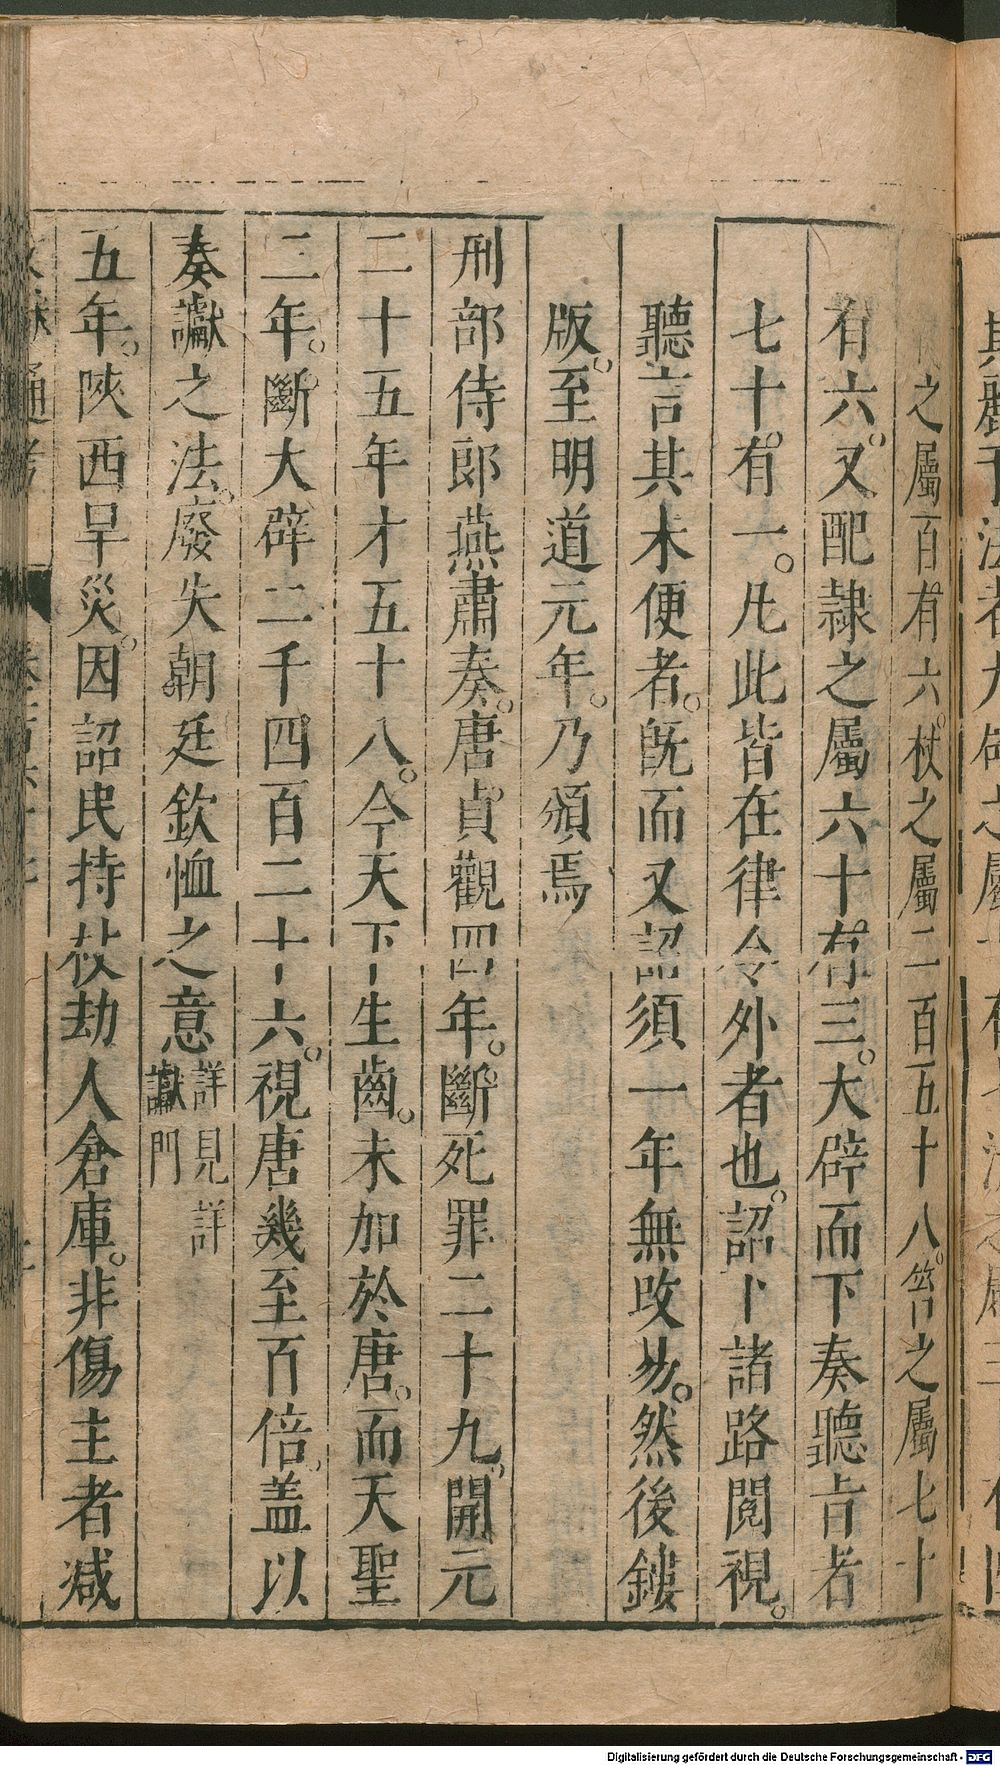 之屬百有六。杖之屬二百五十八。笞之屬七十
有六。又配隷之屬六十有三。大辟而下奏聽旨者
七十有一。凡此皆在律令外者也。詔下諸路閱視。
聽言其未便者。旣而又詔須一年無攺易。然後鏤
版。至明道元年。乃頒焉
刑部侍郎燕肅奏。唐貞觀四年。斷死罪二十九。開元
二十五年才五十八。今天下生齒。未加於唐。而天聖
二年。斷大辟二千四百二十六。視唐幾至百倍。盖以
奏讞之法。廢失朝廷欽恤之意詳見詳讞門
五年。陜西旱災。因詔民持杖劫人倉庫。非傷主者减
通考
Digitalisierung gefördert durch die Deutsche Forschungsgemeinschaft - DFG